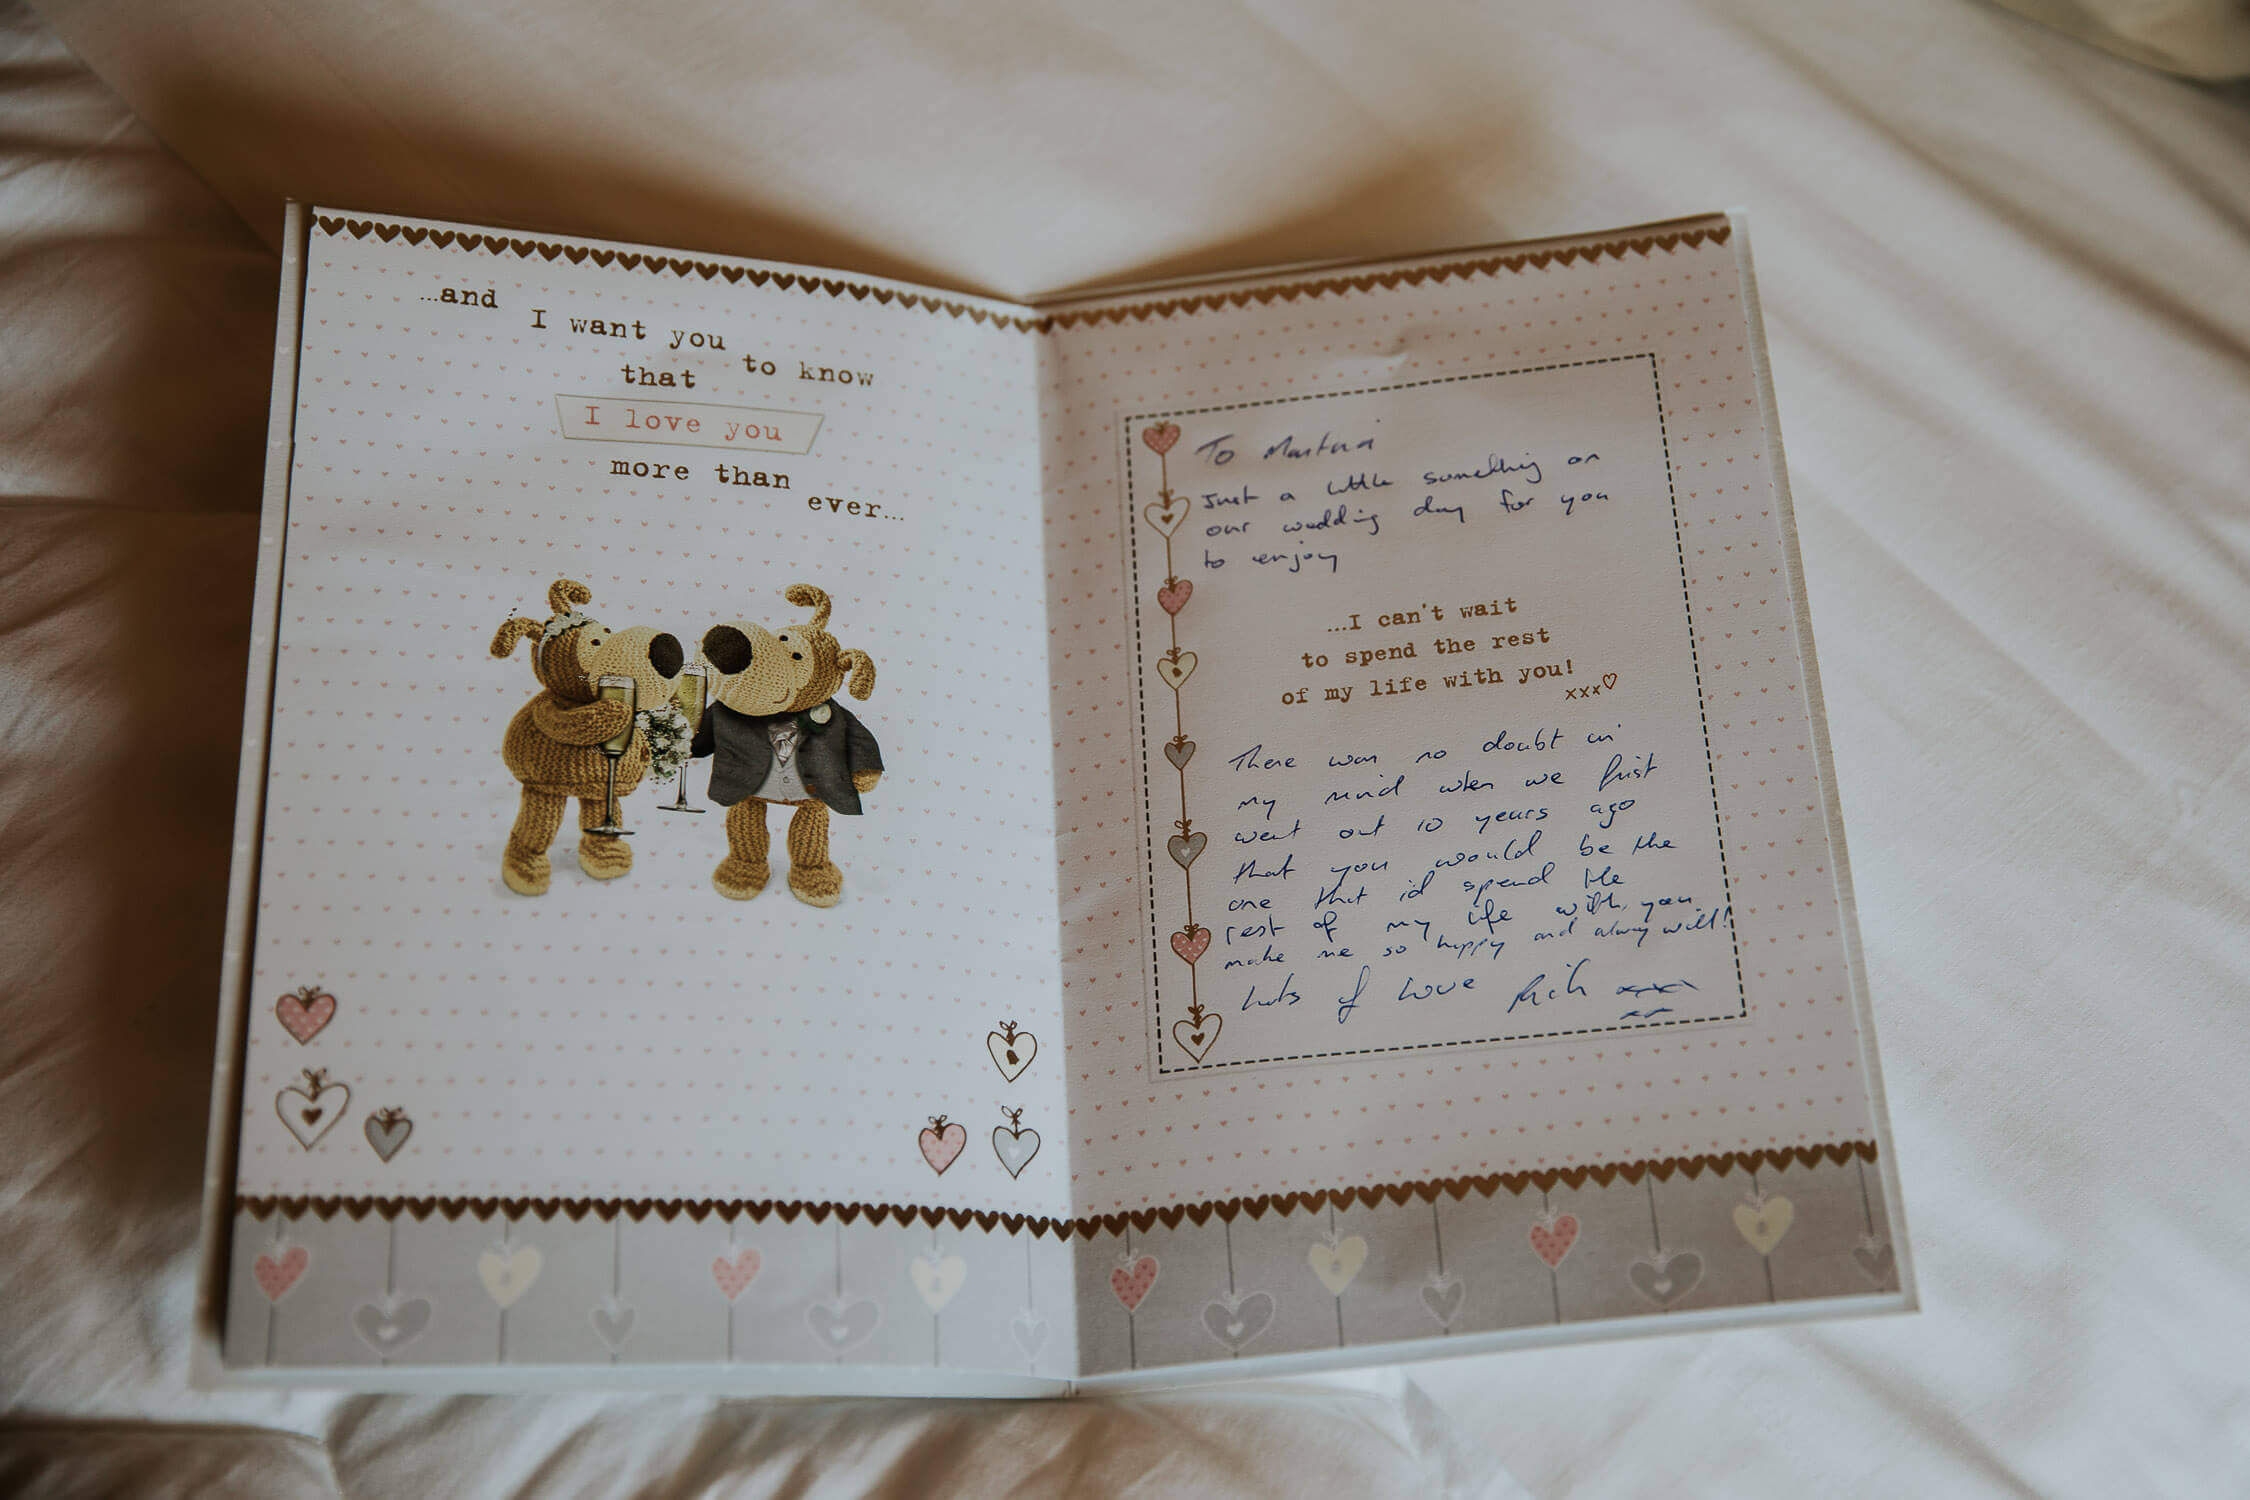 ...and
I want you
to know
that
I love you
more than
ever...
To
Just a little something on
our wedding day for you
to enjoy
...I can't wait
to spend the rest
of my life with you!
xxx♡
There was no doubt in
my mind when we first
went out 10 years ago
that you would be the
one that i'd spend the
rest of my life with, you
make me so happy and always will!
Lots of Love Rich xxx
xx